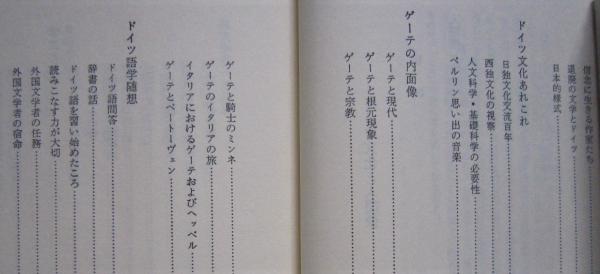 信念に生きる作家たち
退廃の文学とドイツ
日本的様式
ドイツ文化あれこれ
日独文化交流百年
西独文化の視察
人文科学・基礎科学の必要性
ベルリン思い出の音楽
ゲーテの内面像
ゲーテと現代
ゲーテと根元現象
ゲーテと宗教
ゲーテと騎士のミンネ
ゲーテのイタリアの旅
イタリアにおけるゲーテおよびヘッベル
ゲーテとベートーヴェン
ドイツ語学随想
ドイツ語問答
辞書の話
ドイツ語を習い始めたころ
読みこなす力が大切
外国文学者の任務
外国文学者の宿命